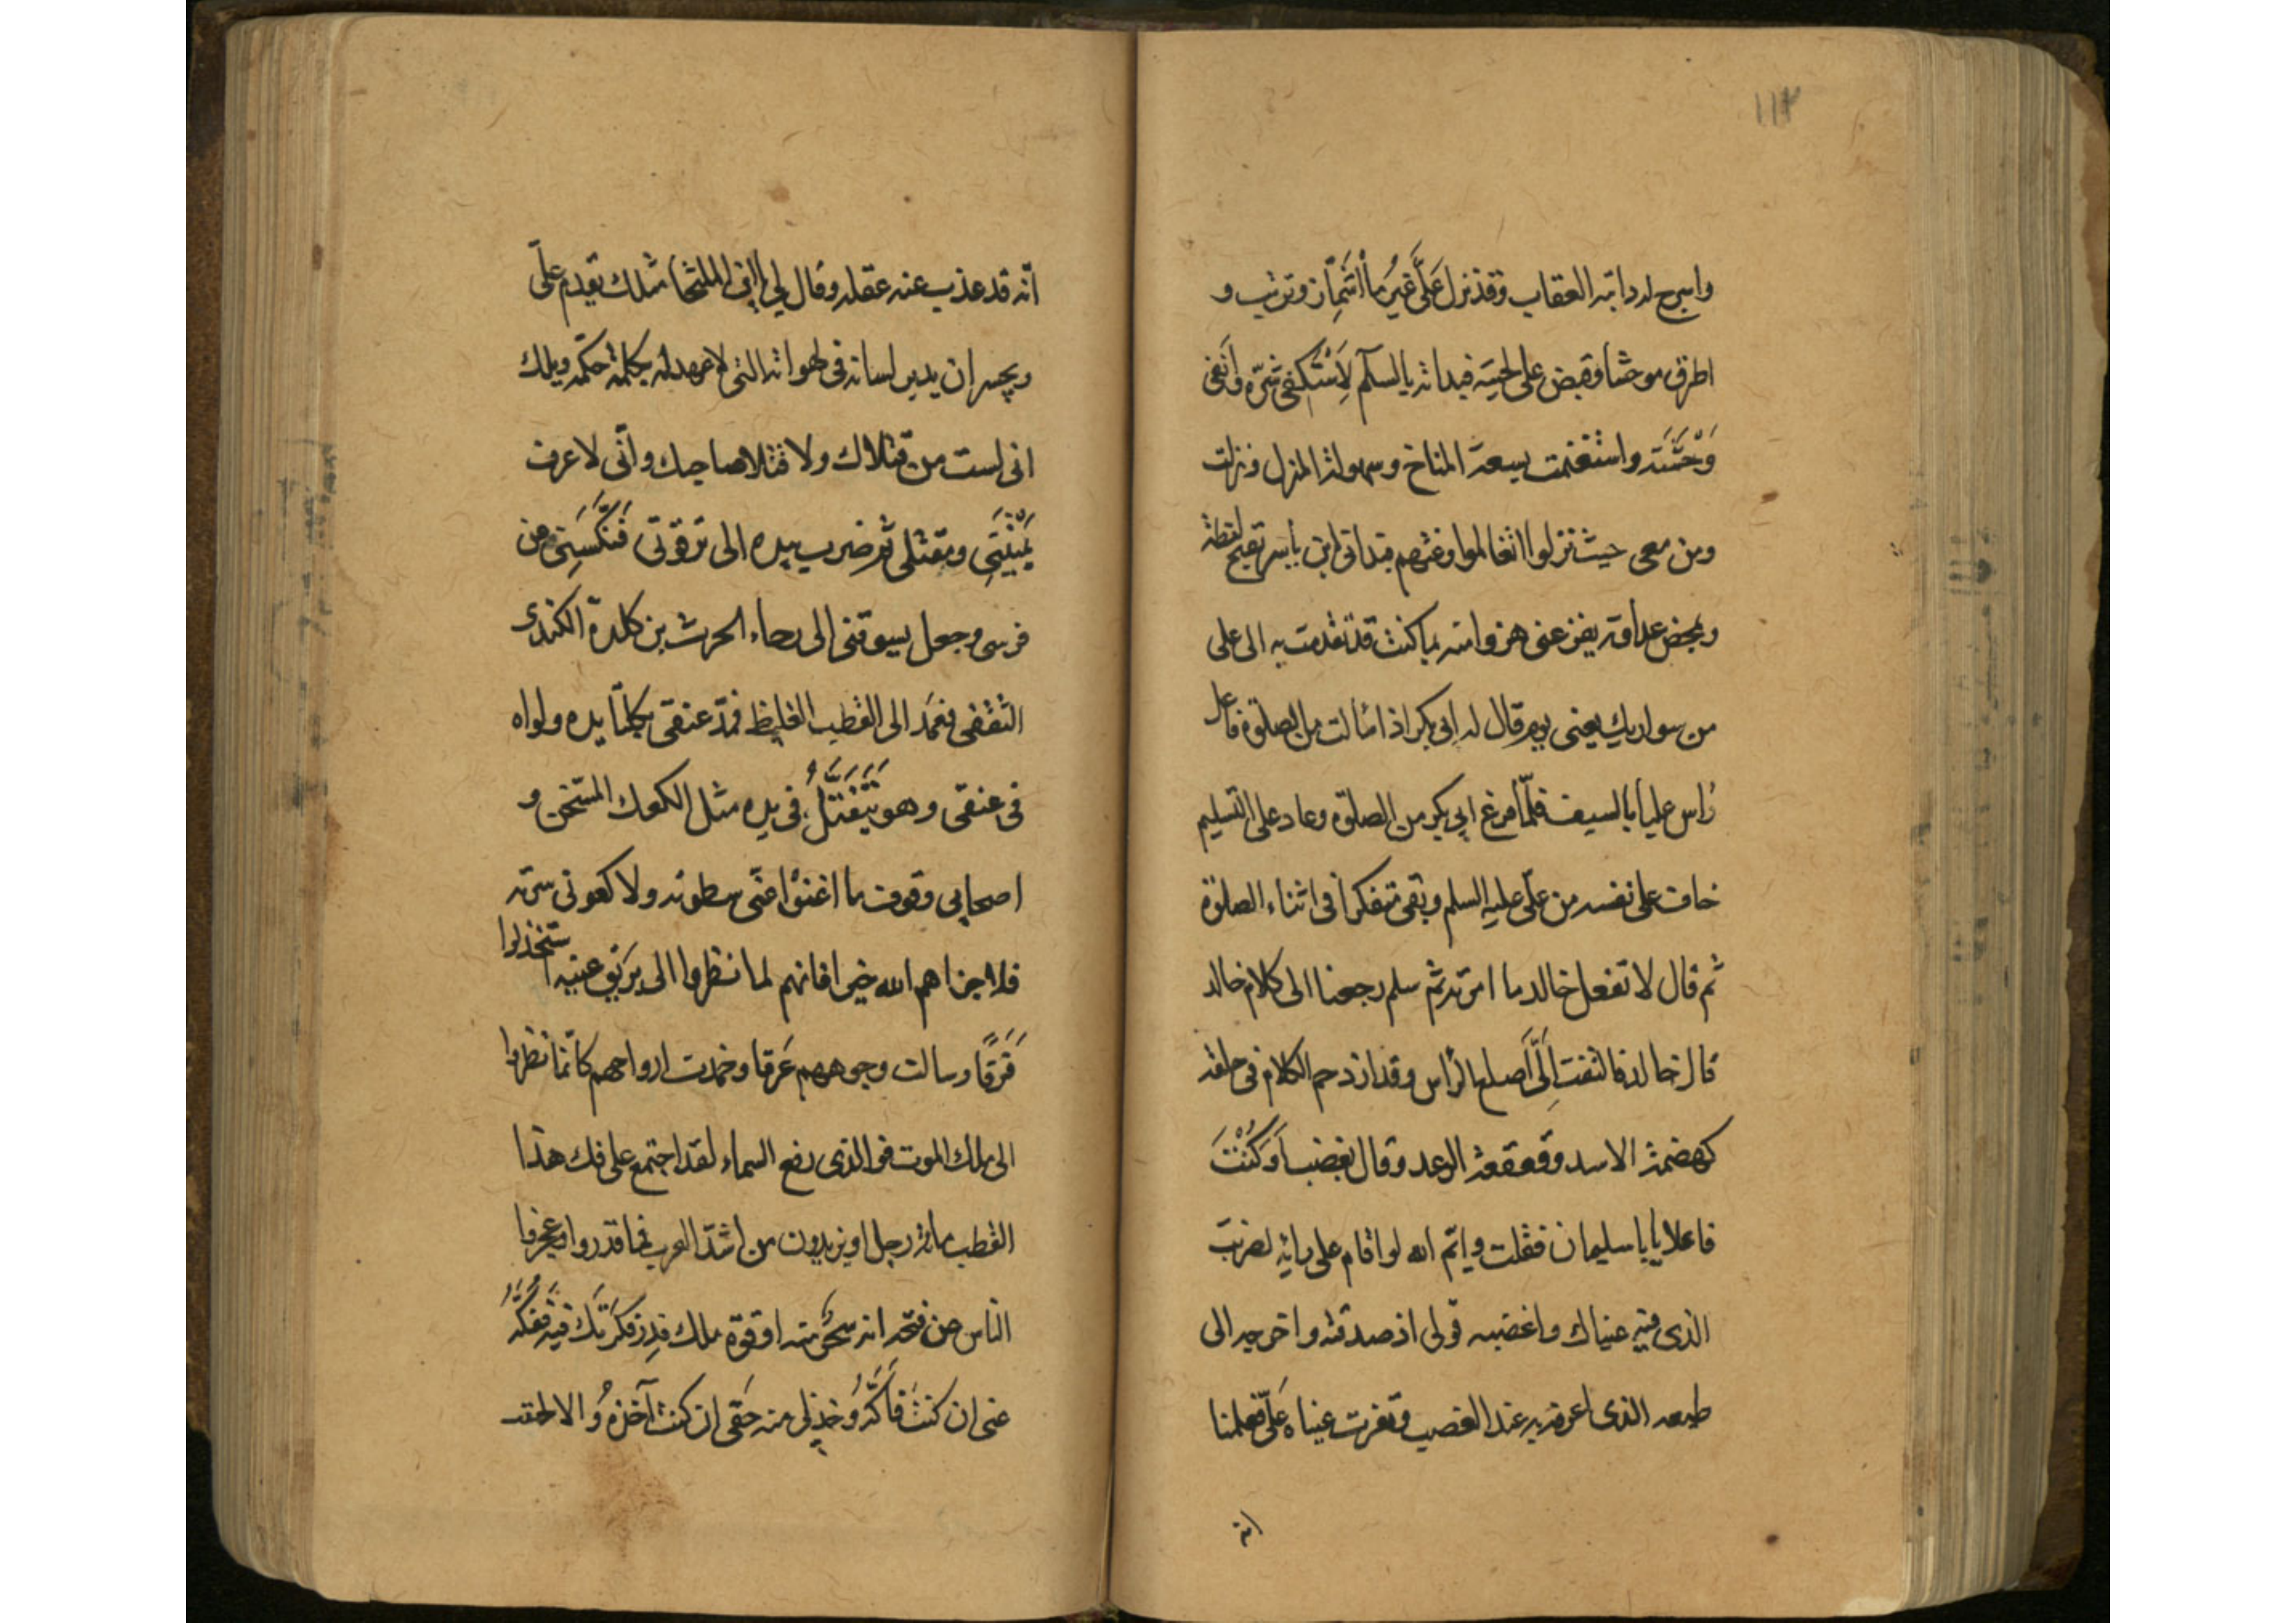 ١١٢
واسرج له دابته العقاب وقد نزل عَلَّى غيرُ ما أشمَأِزّ وترتب و
اطرق موحشا وقبض على لحيته فبداته بالسلم لِاَسْتَكفِىَ شرّه واَنفى
وَحْشَتَه واستغنمت بسعة المناخ وسهولة المنزل ونزلت
ومن معى حيث نزلوا اتقا لموا وغثهم فبداتى ابن ياسر بقبيح لفظه
ومحض عداوته يفز عنى هزوا منه بما كنت قد تقدمت به الى على
من سواريك يعنى يوم قال له ابى بكر اذا ما لت من الصلوة فاعل
راس عليا بالسيف فلمّا فرغ ابى بكر من الصلوة وعاد على التسليم
خاف على نفسه من علّى عليه السلم وبقى متفكرا فى اثناء الصلوة
ثم قال لا تفعل خالد ما امرته ثم سلم رجعنا الى كلام خالد
قال خالد فالتفت اِلَىَّ اَصلع الرأس وقد ازدحم الكلام فى حلقه
كهضمة الاسد وقعقعة الرعد وقال بغضب اَوَكُنْتَ
فاعلا يابا سليمان فقلت وايّم الله لو اقام على رايه لضربت
الذى فيه عيناك واغضبه قولى اذ صدقته واخرجه الى
طبعه الذى اعرفه به عند الغضب وتعزت عيناه عَلَّى فعلمنا
انّه
انّه قد عذب عنه عقله وقال لى يا ابن اللخنا مثلك يقدم علّى
ويجسر ان يدير لسانه فى لهواته التى لا عهد له بكلمة حكمه ويلك
انى لست من قتلاك ولا قتلا صاحبك وانّى لاعرف
بِمَنِيَّتِى ومقتلى ثم ضرب بيده الى ترقوتى فَنَكَّسَنِى عن
فرسى وجعل يسوقنى الى رحاء الحرث بن كلدة الكندى
الثقفى فعَمَد الى القطب الغليظ فمدّ عنقى بكلتا يده ولواه
فى عنقى وهو يَتَفَتَّلُ فى يده مثل الكعك المستخن و
اصحابى وقوف ما اغنوا عنّى سطوته ولا كفونى شره
فلا جزاهم الله خيرا فانهم لما نظروا الى بريق عينيه استخذلوا
فَرَقًا وسالت وجوههم عَرقا وخمدت ارواحهم كانّما نظروا
الى ملك الموت فوالذى رفع السماء لقد اجتمع على فك هذا
القطب مائة رجل او يزيدون من اشدّ العرب فما قدروا وعجزوا
الناس عن فتحه انه سحْر منه او قوة ملك قد ركبت فيه فَفُكَّهُ
عنى ان كنت فاكّهُ وخذ لى منه حقى ان كنت آخذهُ والا لحقت